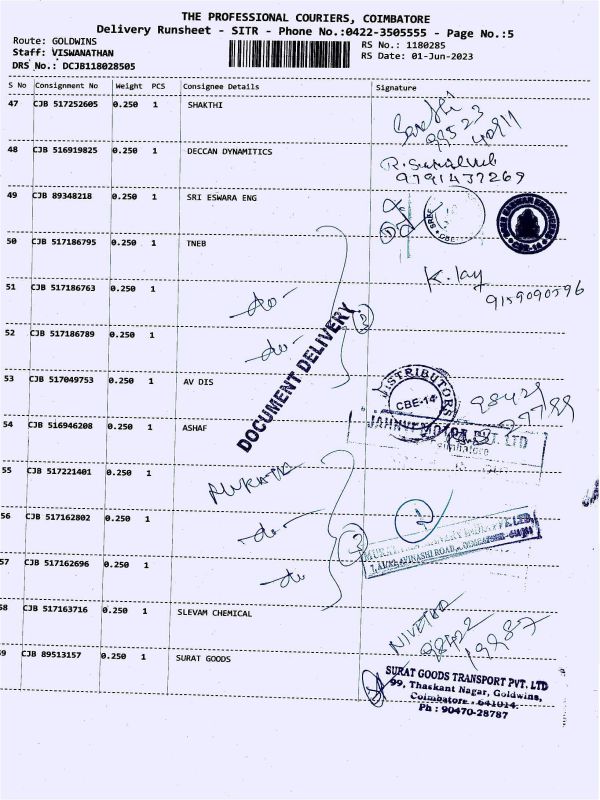 THE PROFESSIONAL COURIERS, COIMBATORE
Delivery Runsheet - SITR - Phone No.:0422-3505555 - Page No.:5
Route: GOLDWINS
RS No.: 1180285
Staff: VISWANATHAN
RS Date: 01-Jun-2023
DRS No.: DCJB118028505
S No Consignment No Weight PCS Consignee Details Signature
47 CJB 517252605 0.250 1 SHAKTHI
99523
40911
48 CJB 516919825 0.250 1 DECCAN DYNAMITICS
9791437269
49 CJB 89348218 0.250 1 SRI ESWARA ENG
50 CJB 517186795 0.250 1 TNEB
K. lay
9159090596
51 CJB 517186763 0.250 1 -do-
52 CJB 517186789 0.250 1 -do-
DOCUMENT DELIVERY
53 CJB 517049753 0.250 1 AV DIS
DISTRIBUTORS
CBE-14
54 CJB 516946208 0.250 1 ASHAF
55 CJB 517221401 0.250 1
56 CJB 517162802 0.250 1 -do-
57 CJB 517162696 0.250 1 -do-
58 CJB 517163716 0.250 1 SLEVAM CHEMICAL
NIVETHA
98422
19987
9 CJB 89513157 0.250 1 SURAT GOODS
SURAT GOODS TRANSPORT PVT. LTD
99, Thaskant Nagar, Goldwins,
Coimbatore - 641014.
Ph : 90470-28787